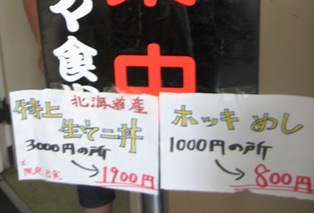 食
中
北海道産
特上
生うに丼
3000円の所
1900円
ホッキめし
1000円の所
800円